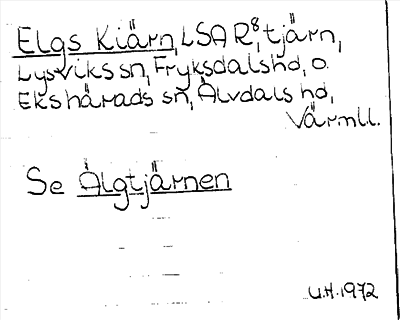 Elgs Kiärn, LSA R⁸, tjärn,
Lysviks sn, Fryksdals hd, o.
Ekshärads sn, Älvdals hd,
Värml.
Se Älgtjärnen
U.H. 1972